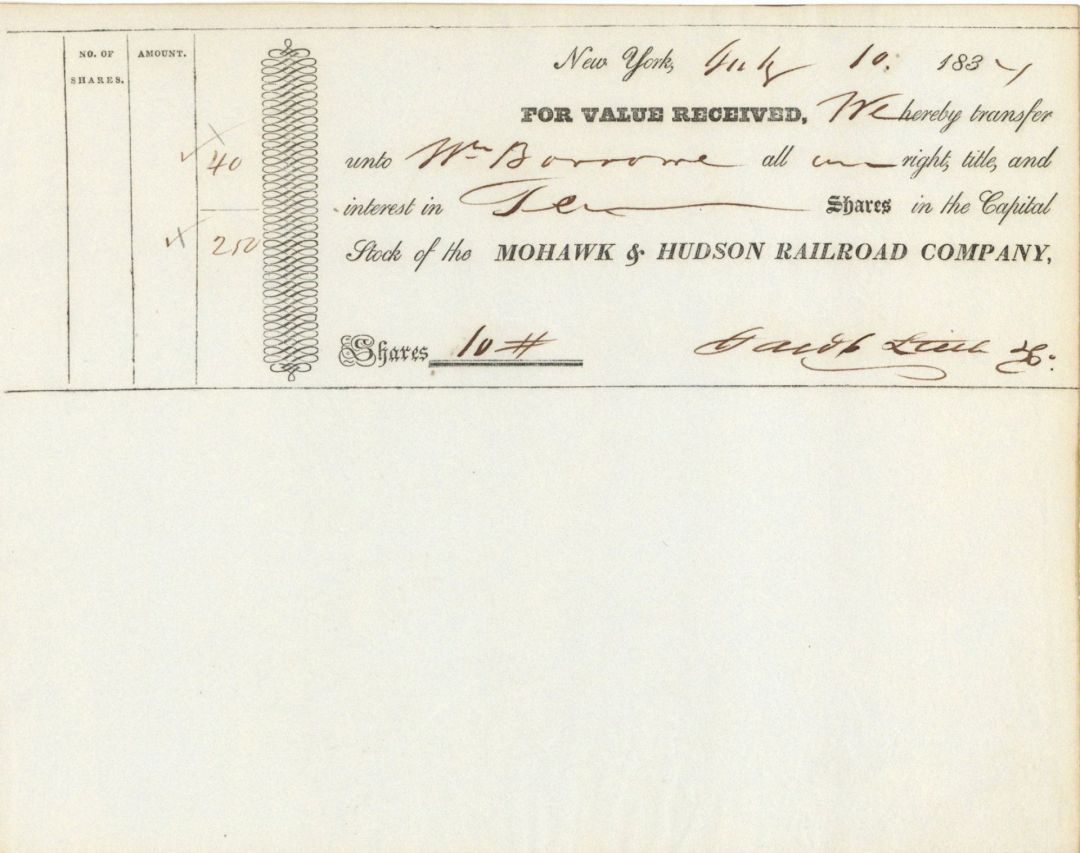 NO. OF
SHARES.
AMOUNT.
New York, July 10. 1837
FOR VALUE RECEIVED, We hereby transfer
40
unto Wm Borrowe all our right, title, and
interest in Ten Shares in the Capital
250
Stock of the MOHAWK & HUDSON RAILROAD COMPANY,
Shares 10 #
Jacob Little & Co.